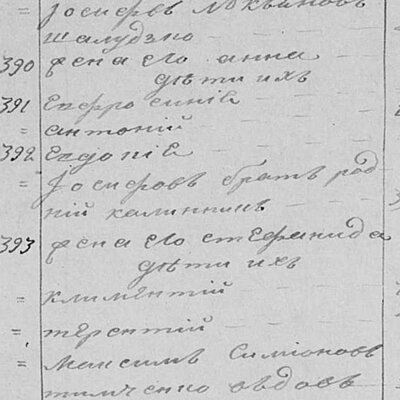 = Јосифовъ Локвиновъ
шалудзко
390 жена его анна
дѣти ихъ
391 Евфросинїѣ
= антоній
392 Евдокіѣ
= Јосифовъ братъ род
ній калинникъ
393 жена его стефанида
дѣти ихъ
= климентій
= терентій
= максимъ Симіоновъ
тимченко вдовъ